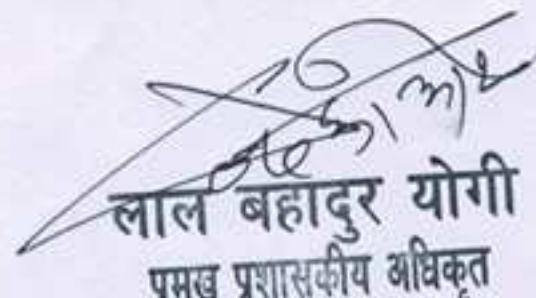 लाल बहादुर योगी
प्रमुख प्रशासकीय अधिकृत